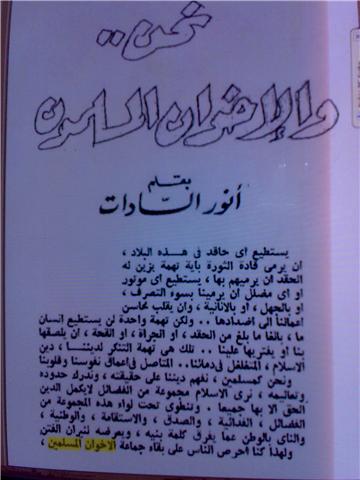 نحن..
والإخوان المسلمون
بقلم
أنور السادات
يستطيع اى حاقد فى هذه البلاد ،
ان يرمى قادة الثورة باية تهمة يزين له
الحقد ان يرميهم بها ، يستطيع اى موتور
او اى مضلل ان يرمينا بسوء التصرف ،
او بالجهل ، او بالانانية ، وان يقلب محاسن
اعمالنا الى اضدادها .. ولكن تهمة واحدة لن يستطيع انسان
ما ، بالغا ما بلغ من الحقد ، او الجراة ، او القحة ، ان يلصقها
بنا او يفتريها علينا .. تلك هى تهمة التنكر لديننا ، دين
الاسلام ، المتغلغل فى دمائنا.. المتاصل فى اعماق نفوسنا وقلوبنا
ونحن كمسلمين ، نفهم ديننا على حقيقته ، وندرك حدوده
وتعاليمه ، نرى الاسلام مجموعة من الفضائل لايكمل الدين
الحق الا بها جميعا . وتنطوى تحت لواء هذه المجموعة من
الفضائل ، الفدائية ، والصدق ، والاستقامة ، والوطنية ،
والناى بالوطن عما يفرق كلمة بنيه ، ويعرضه لنيران الفتن
ولهذا كنا احرص الناس على بقاء جماعة الاخوان المسلمين ،